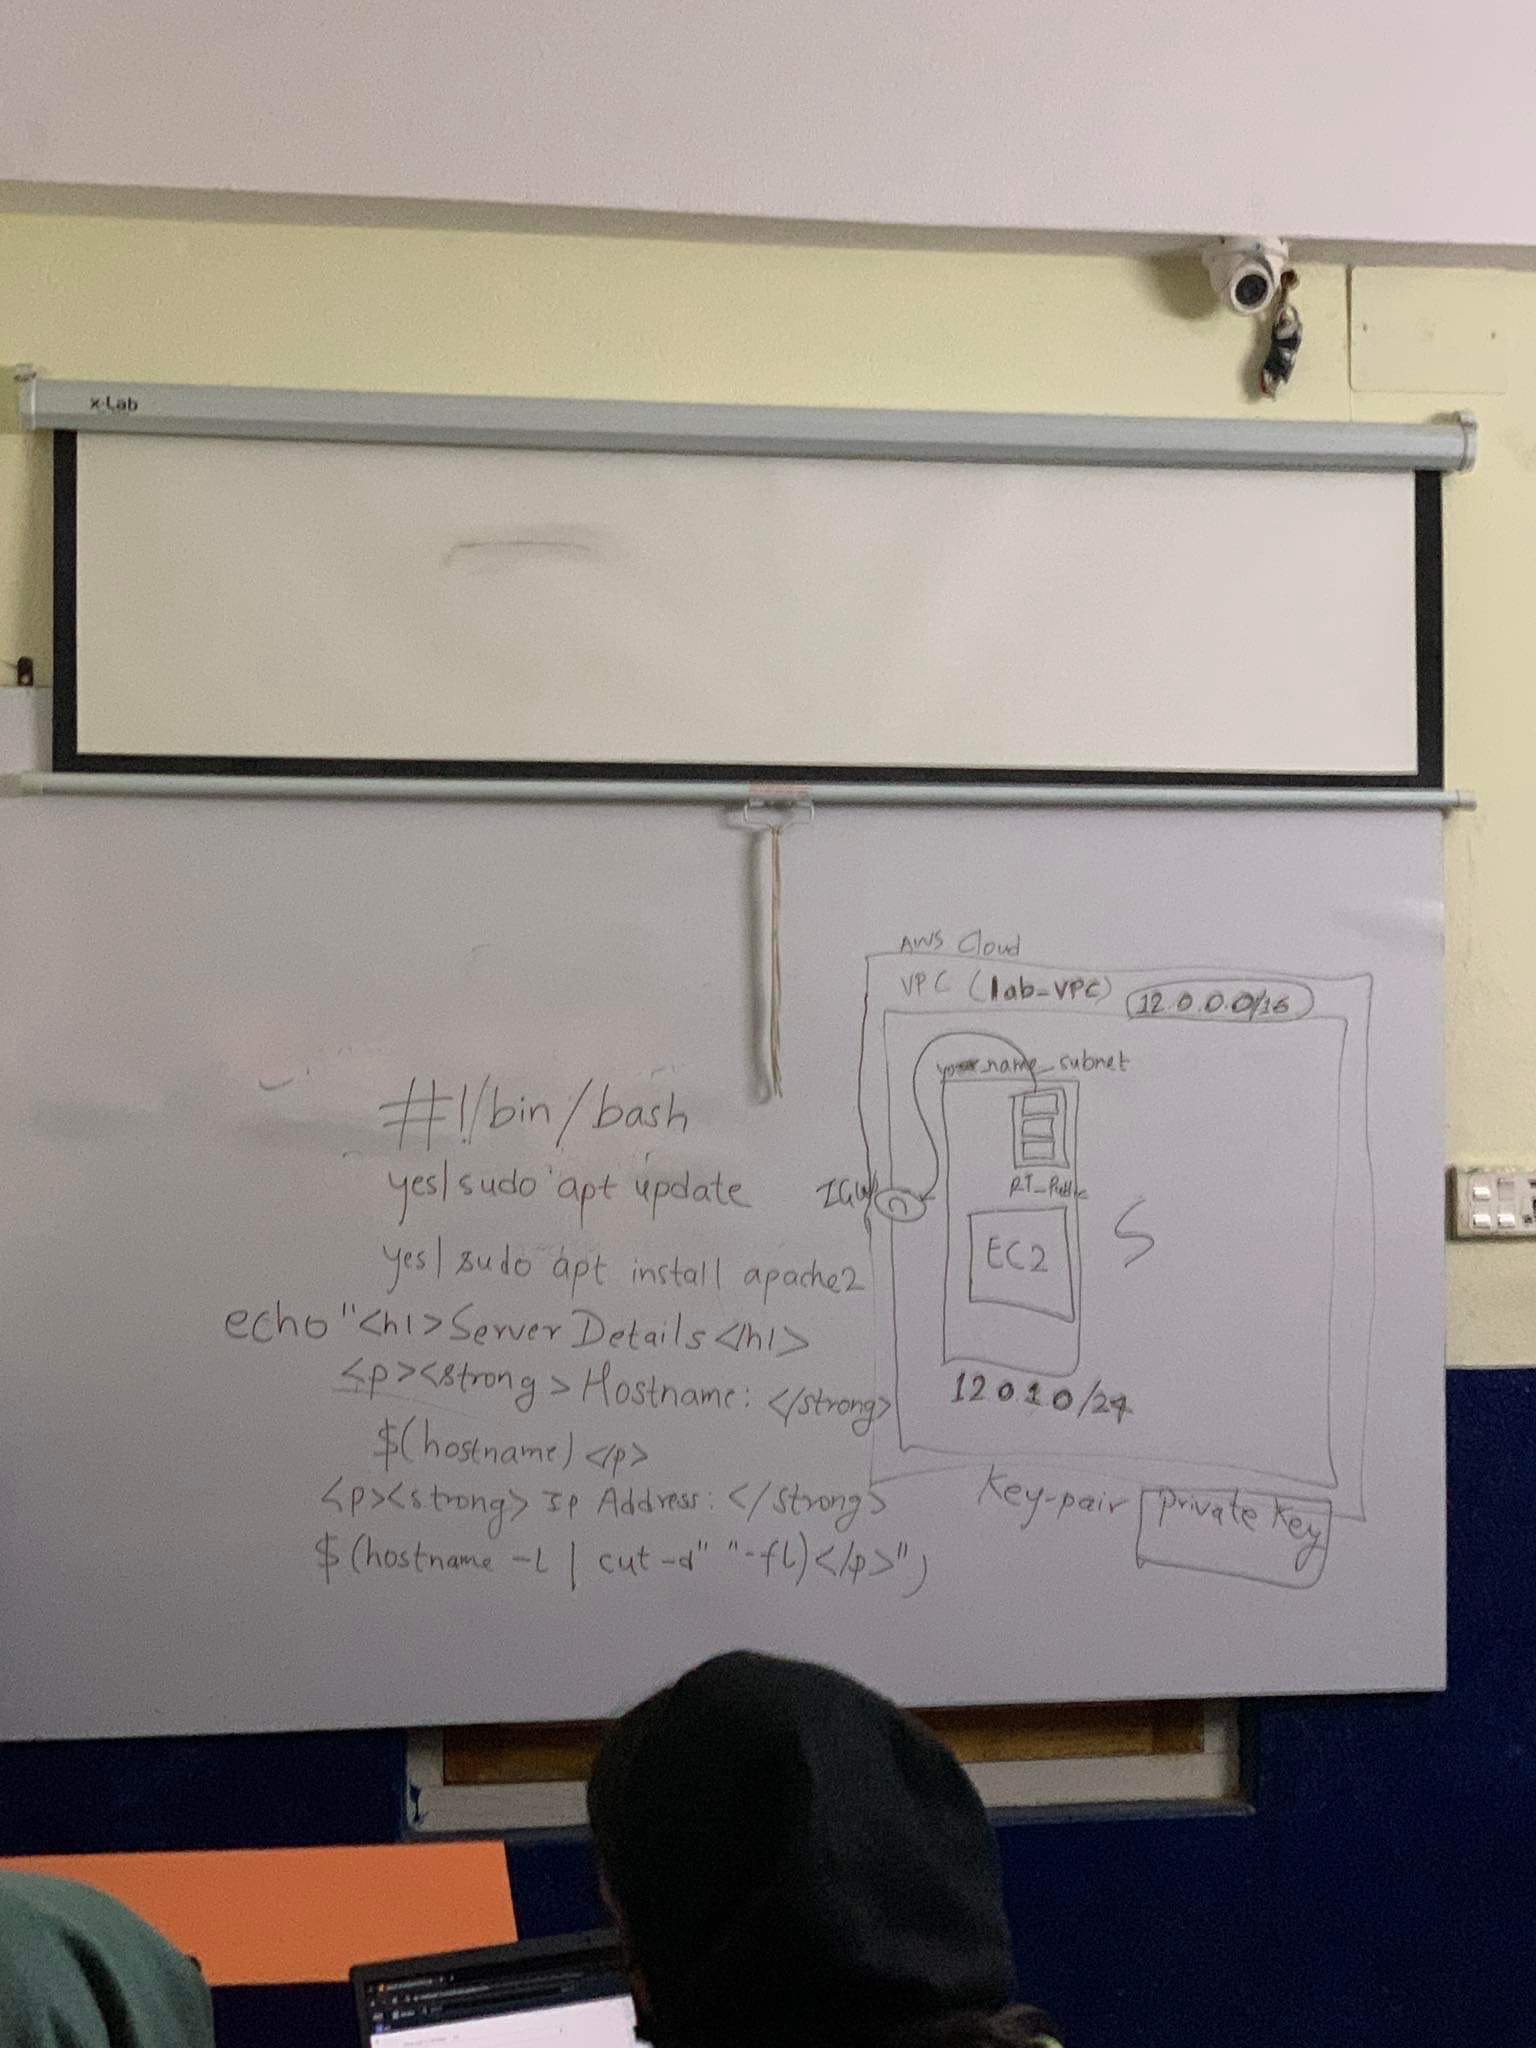 x-Lab
#!/bin/bash
yes|sudo apt update
yes|sudo apt install apache2
echo "<h1>Server Details</h1>
<p><strong>Hostname: </strong>
$(hostname) </p>
<p><strong> Ip Address: </strong>
$(hostname -I | cut -d" "-f1)</p>")
AWS Cloud
VPC (lab-VPC) 12.0.0.0/16
your_name_subnet
RT_Public
IGW
EC2
S
12 0 1 0/24
Key-pair Private Key